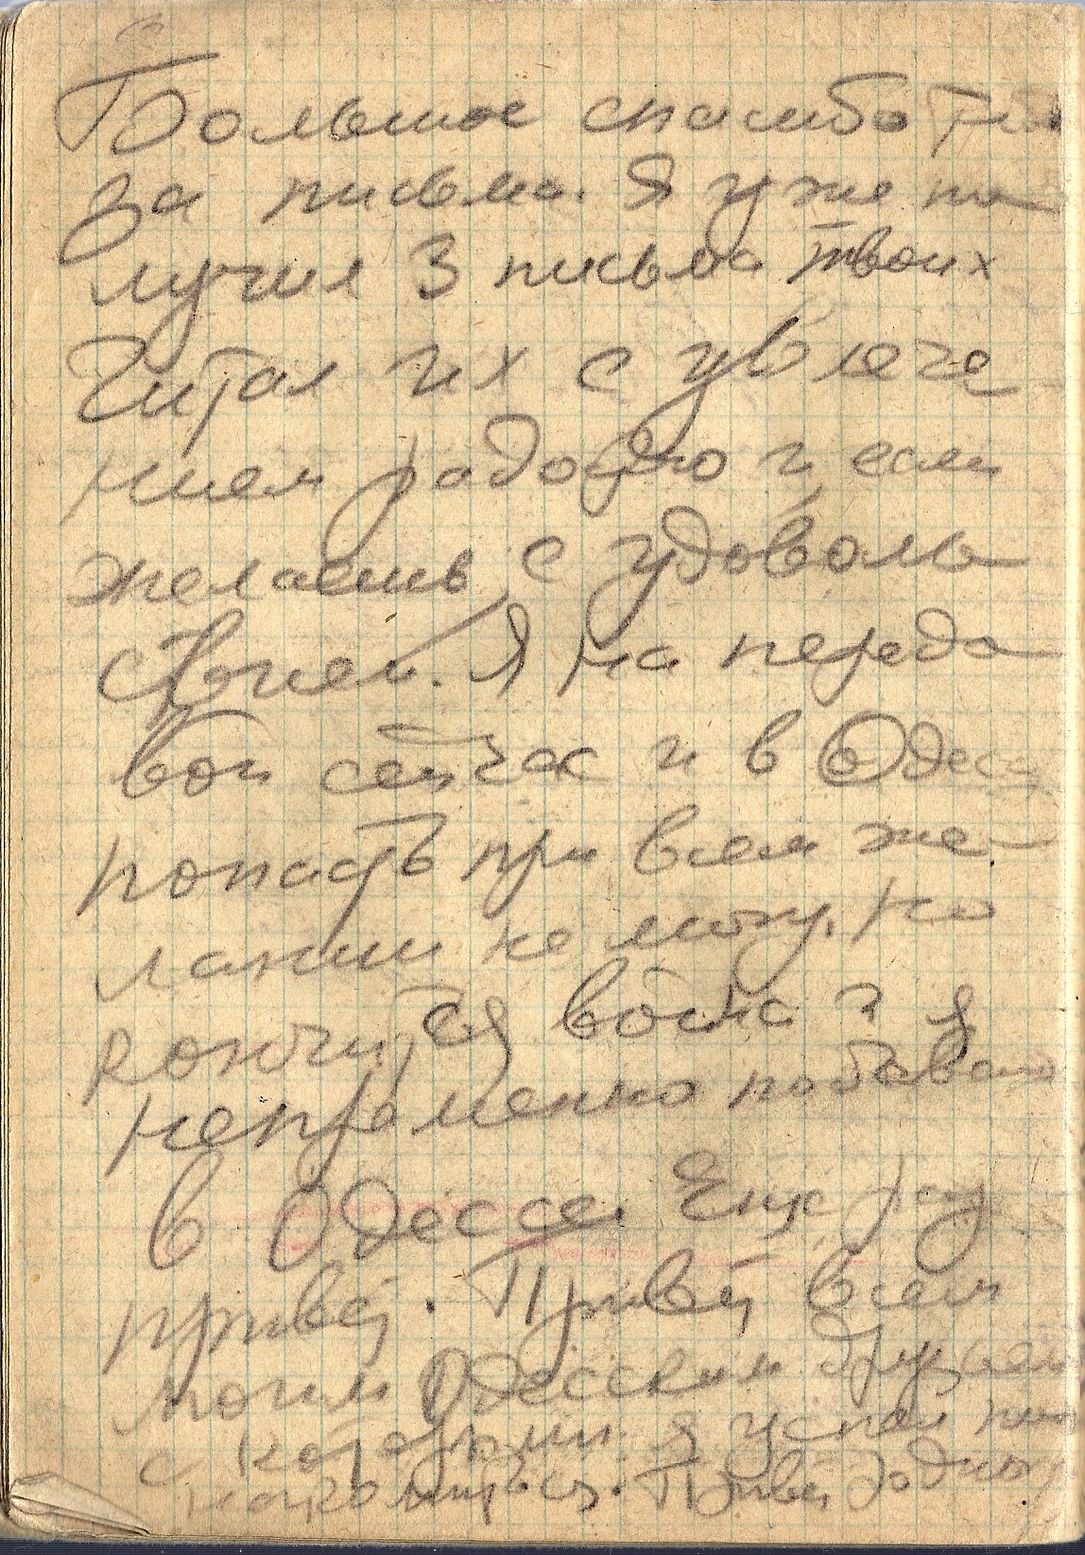 Большое спасибо тебе
за письма. Я уже по
лучил 3 письма твоих
Читал их с увлече
нием радостью и если
желаешь с удоволь
ствием. Я на передо
вой сейчас и в Одессе
попасть при всем же-
лании не могу. Но
кончится война и я
непременно побываю
в Одессе. Еще раз
привет. Привет всем
моим Одесским друзьям
с которыми я успел
познакомиться. Привет